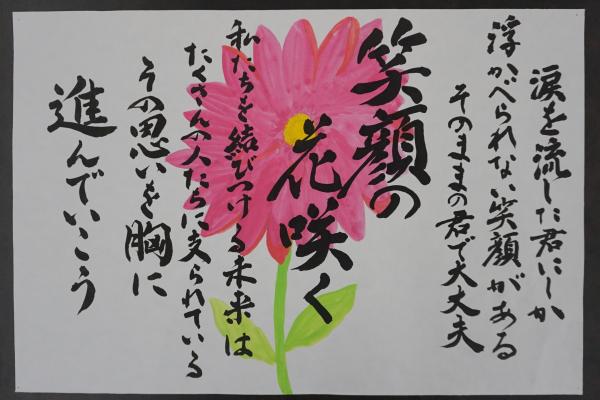 涙を流した君にしか
浮かべられない笑顔がある
そのままの君で大丈夫
笑顔の
花咲く
私たちを結びつける未来は
たくさんの人たちに支られている
その思いを胸に
進んでいこう